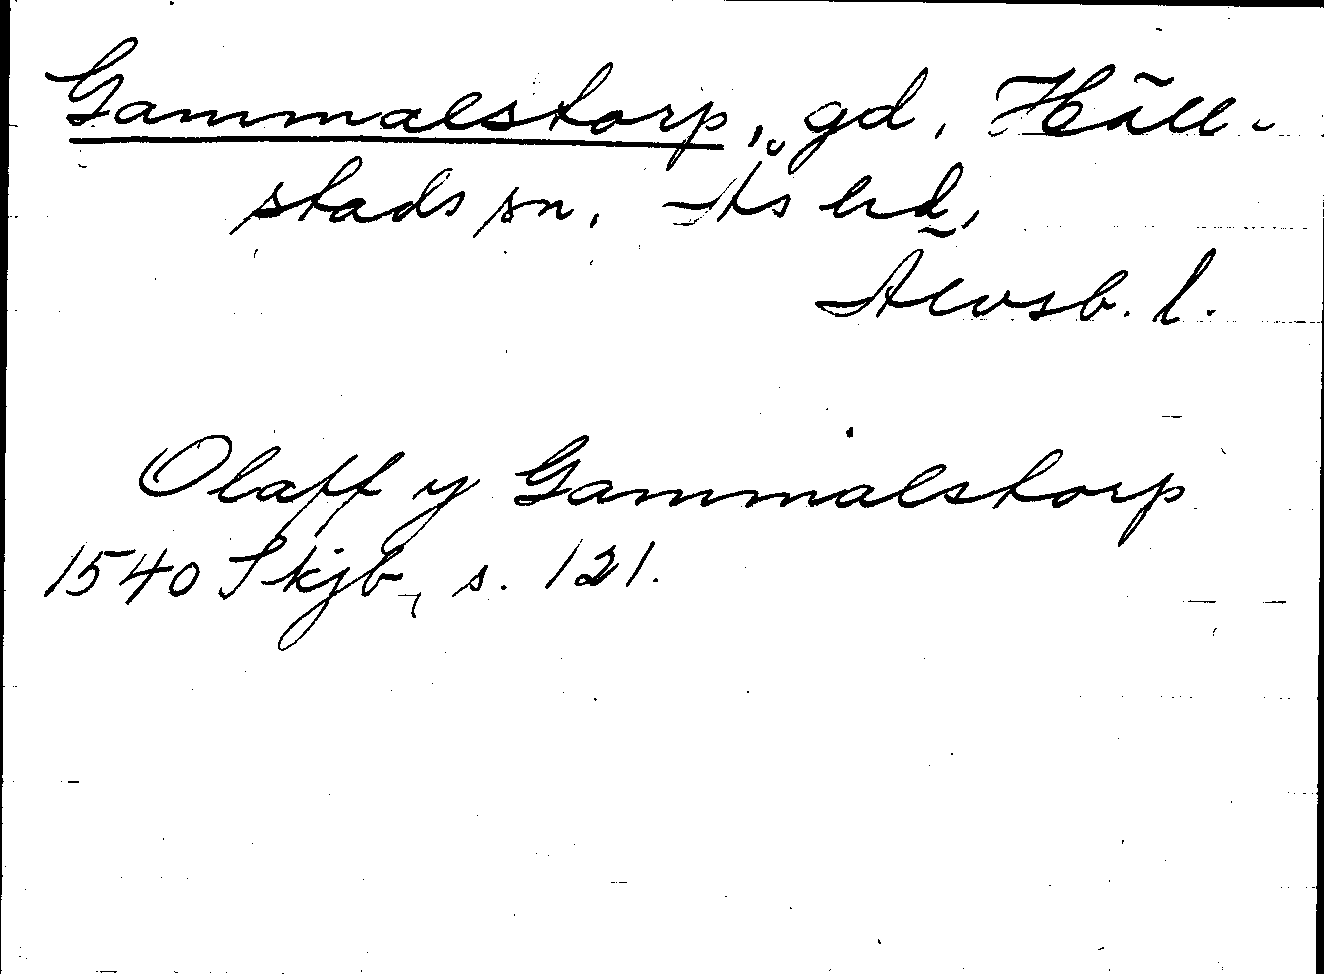 Gammalstorp, gd, Häll-
stads sn. Ås hd,
Älvsb. l.
Olaff y Gammalstorp
1540 Skjb, s. 121.